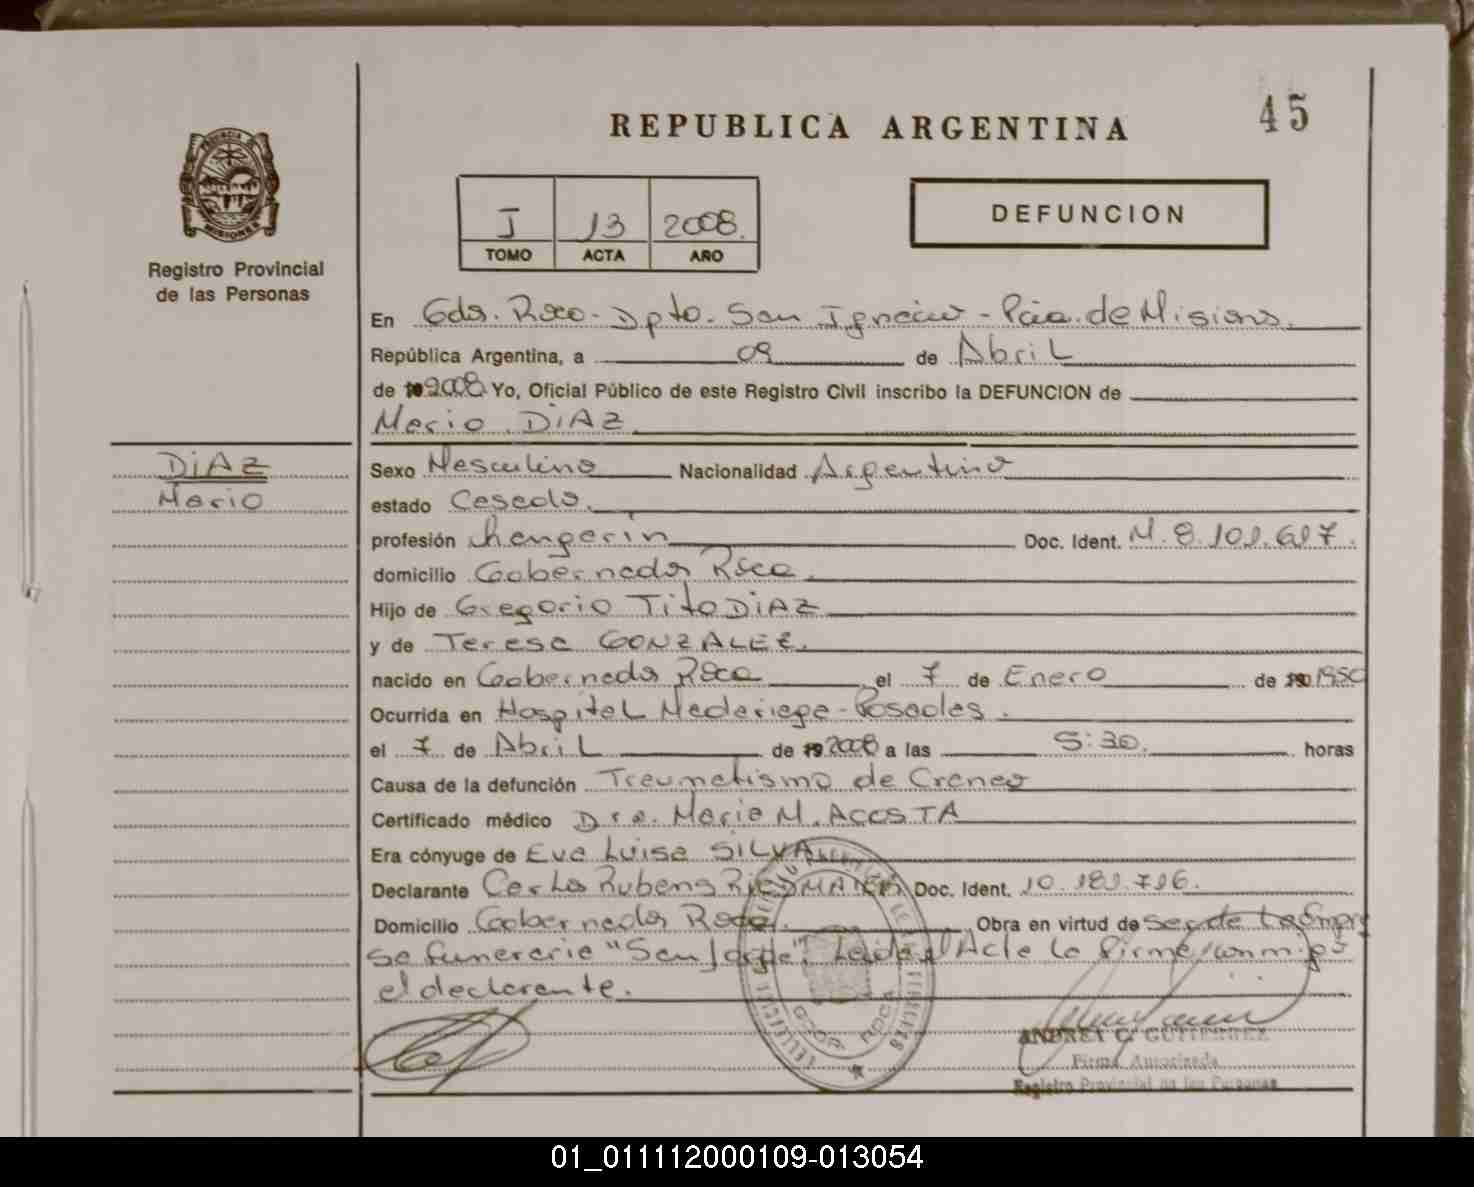 REPUBLICA ARGENTINA
45
PROVINCIA DE
MISIONES
Registro Provincial
de las Personas
I 13 2008.
TOMO ACTA AÑO
DEFUNCION
En Gdor. Roca - Dpto. San Ignacio - Pcia. de Misiones.
República Argentina, a 09 de Abril
de 2008 Yo, Oficial Público de este Registro Civil inscribo la DEFUNCION de
Mario DIAZ
DIAZ
Mario
Sexo Masculino Nacionalidad Argentino
estado Casado.
profesión Changarin Doc. Ident. M. 8.101.617.
domicilio Gobernador Roca
Hijo de Gregorio Tito DIAZ
y de Teresa GONZALEZ.
nacido en Gobernador Roca el 7 de Enero de 1950
Ocurrida en Hospital Madariaga - Posadas.
el 7 de Abril de 2008 a las 5:30. horas
Causa de la defunción Traumatismo de Craneo
Certificado médico Dra. Maria M. ACOSTA
Era cónyuge de Eva Luisa SILVA
Declarante Carlos Rubens Doc. Ident. 10.181.716.
Domicilio Gobernador Roca. Obra en virtud de ser de La Empre
sa funeraria "San Jorge". Leida el Acta la firma conmigo
el declarante.
GDOR. ROCA
ANDRES G. GUTIERREZ
Firma Autorizada
Registro Provincial de las Personas
01_011112000109-013054